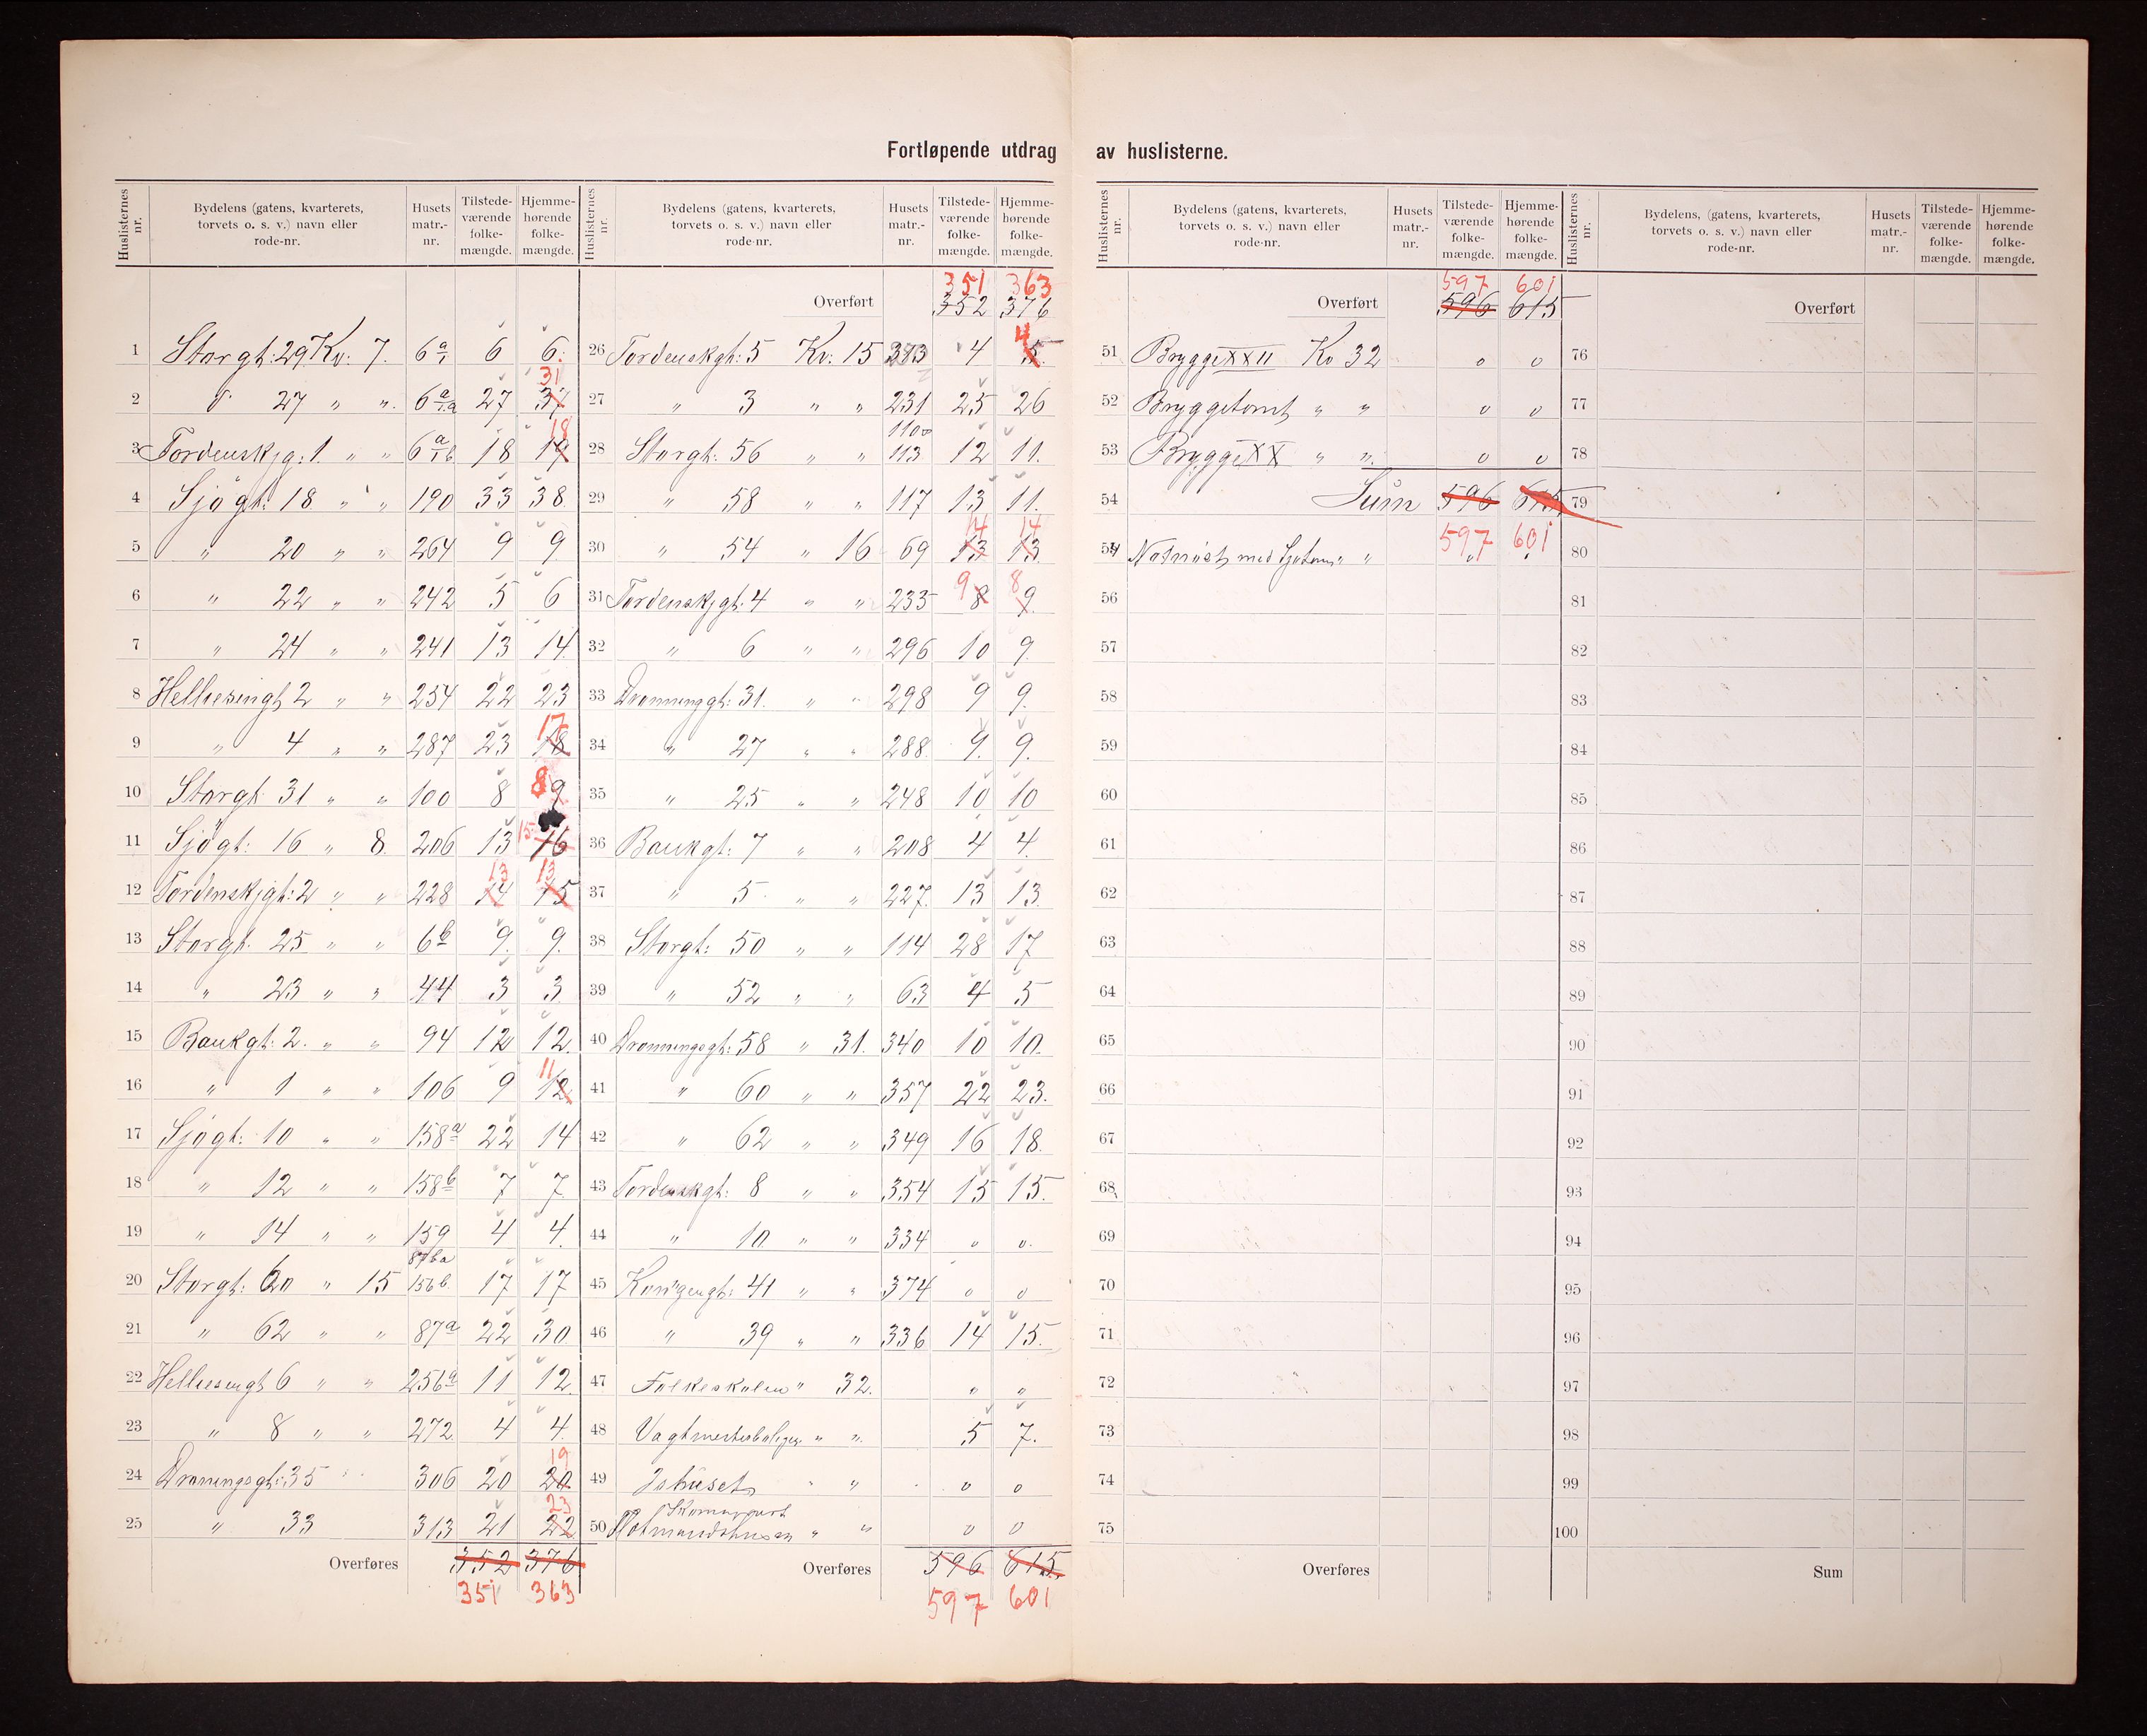 Fortløpende utdrag av huslisterne.
Huslisternes nr. Bydelens (gatens, kvarterets, torvets o. s. v.) navn eller rode-nr. Husets matr.-nr. Tilstede-værende folke-mængde. Hjemme-hørende folke-mængde.
1 Storgt: 29 Kv: 7. 6a 6 6.
2 " 27 " " 27 37 31
3 Tordenskjg: 1. " " 18 19 18
4 Sjøgt: 18 " " 190 33 38
5 " 20 " " 264 9 9
6 " 22 " " 242 5 6
7 " 24 " " 241 13 14
8 Helliesengt 2 " " 254 22 23
9 " 4 " " 287 23 18 17
10 Storgt 31 " " 100 8 9 8
11 Sjøgt: 16 " 8. 206 13 16 15
12 Tordenskjgt: 2 " " 228 14 13 15 13
13 Storgt. 25 " " 6b 9. 9.
14 " 23 " " 44 3 3
15 Bankgt: 2. " " 94 12 12.
16 " 1 " " 106 9 12 11
17 Sjøgt: 10 " " 158a 22 14
18 " 12 " " 158b 7 7
19 " 14 " " 159 4 4.
20 Storgt: 60 " 15 156b. 17 17
21 " 62 " " 87a 22 30
22 Helliesengt 6 " " 256a 11 12
23 " 8 " " 272 4 4.
24 Dronningsgt: 35 306 20 20 19
25 " 33 313 21 22 23
Overføres 352 376
351 363
Huslisternes nr. Bydelens (gatens, kvarterets, torvets o. s. v.) navn eller rode-nr. Husets matr.-nr. Tilstede-værende folke-mængde. Hjemme-hørende folke-mængde.
351 363
Overført 352 376
26 Tordenskgt: 5 Kv: 15 4 5 4
27 " 3 " " 231 25 26
28 Storgt: 56 " " 113 12 11.
29 " 58 " " 117 13 11.
30 " 54 " 16 69 13 14 13 14
31 Tordenskjgt. 4 " " 235 8 9 9 8
32 " 6 " " 296 10 9.
33 Dronninggt: 31. " " 298 9 9.
34 " 27 " " 288 9. 9.
35 " 25 " " 248 10 10
36 Bankgt: 7 " " 208 4 4.
37 " 5 " " 227. 13 13.
38 Storgt: 50 " " 114 28 17
39 " 52 " " 63 4 5
40 Dronningsgt: 58 " 31. 340 10 10.
41 " 60 " " 357 22 23.
42 " 62 " " 349 16 18.
43 Tordenskgt: 8 " " 354 15 15.
44 " 10 " " 334 " 0.
45 Kongengt: 41 " " 374 0 0
46 " 39 " " 336 14 15.
47 Folkeskolen " 32. " "
48 Vagtmesterboligen " " 5 7.
49 Ishuset " " 0 0
50 " " 0 0
Overføres 596 615.
597 601
Huslisternes nr. Bydelens (gatens, kvarterets, torvets o. s. v.) navn eller rode-nr. Husets matr.-nr. Tilstede-værende folke-mængde. Hjemme-hørende folke-mængde.
597 601
Overført 596 615
51 Brygge XXII Kv 32 0 0
52 Bryggetomt " " 0 0
53 Brygge XX " " 0 0
54 Sum 596 615
597 601
55 med " " " "
56
57
58
59
60
61
62
63
64
65
66
67
68
69
70
71
72
73
74
75
Overføres
Huslisternes nr. Bydelens, (gatens, kvarterets, torvets o. s. v.) navn eller rode-nr. Husets matr.-nr. Tilstede-værende folke-mængde. Hjemme-hørende folke-mængde.
Overført
76
77
78
79
80
81
82
83
84
85
86
87
88
89
90
91
92
93
94
95
96
97
98
99
100
Sum